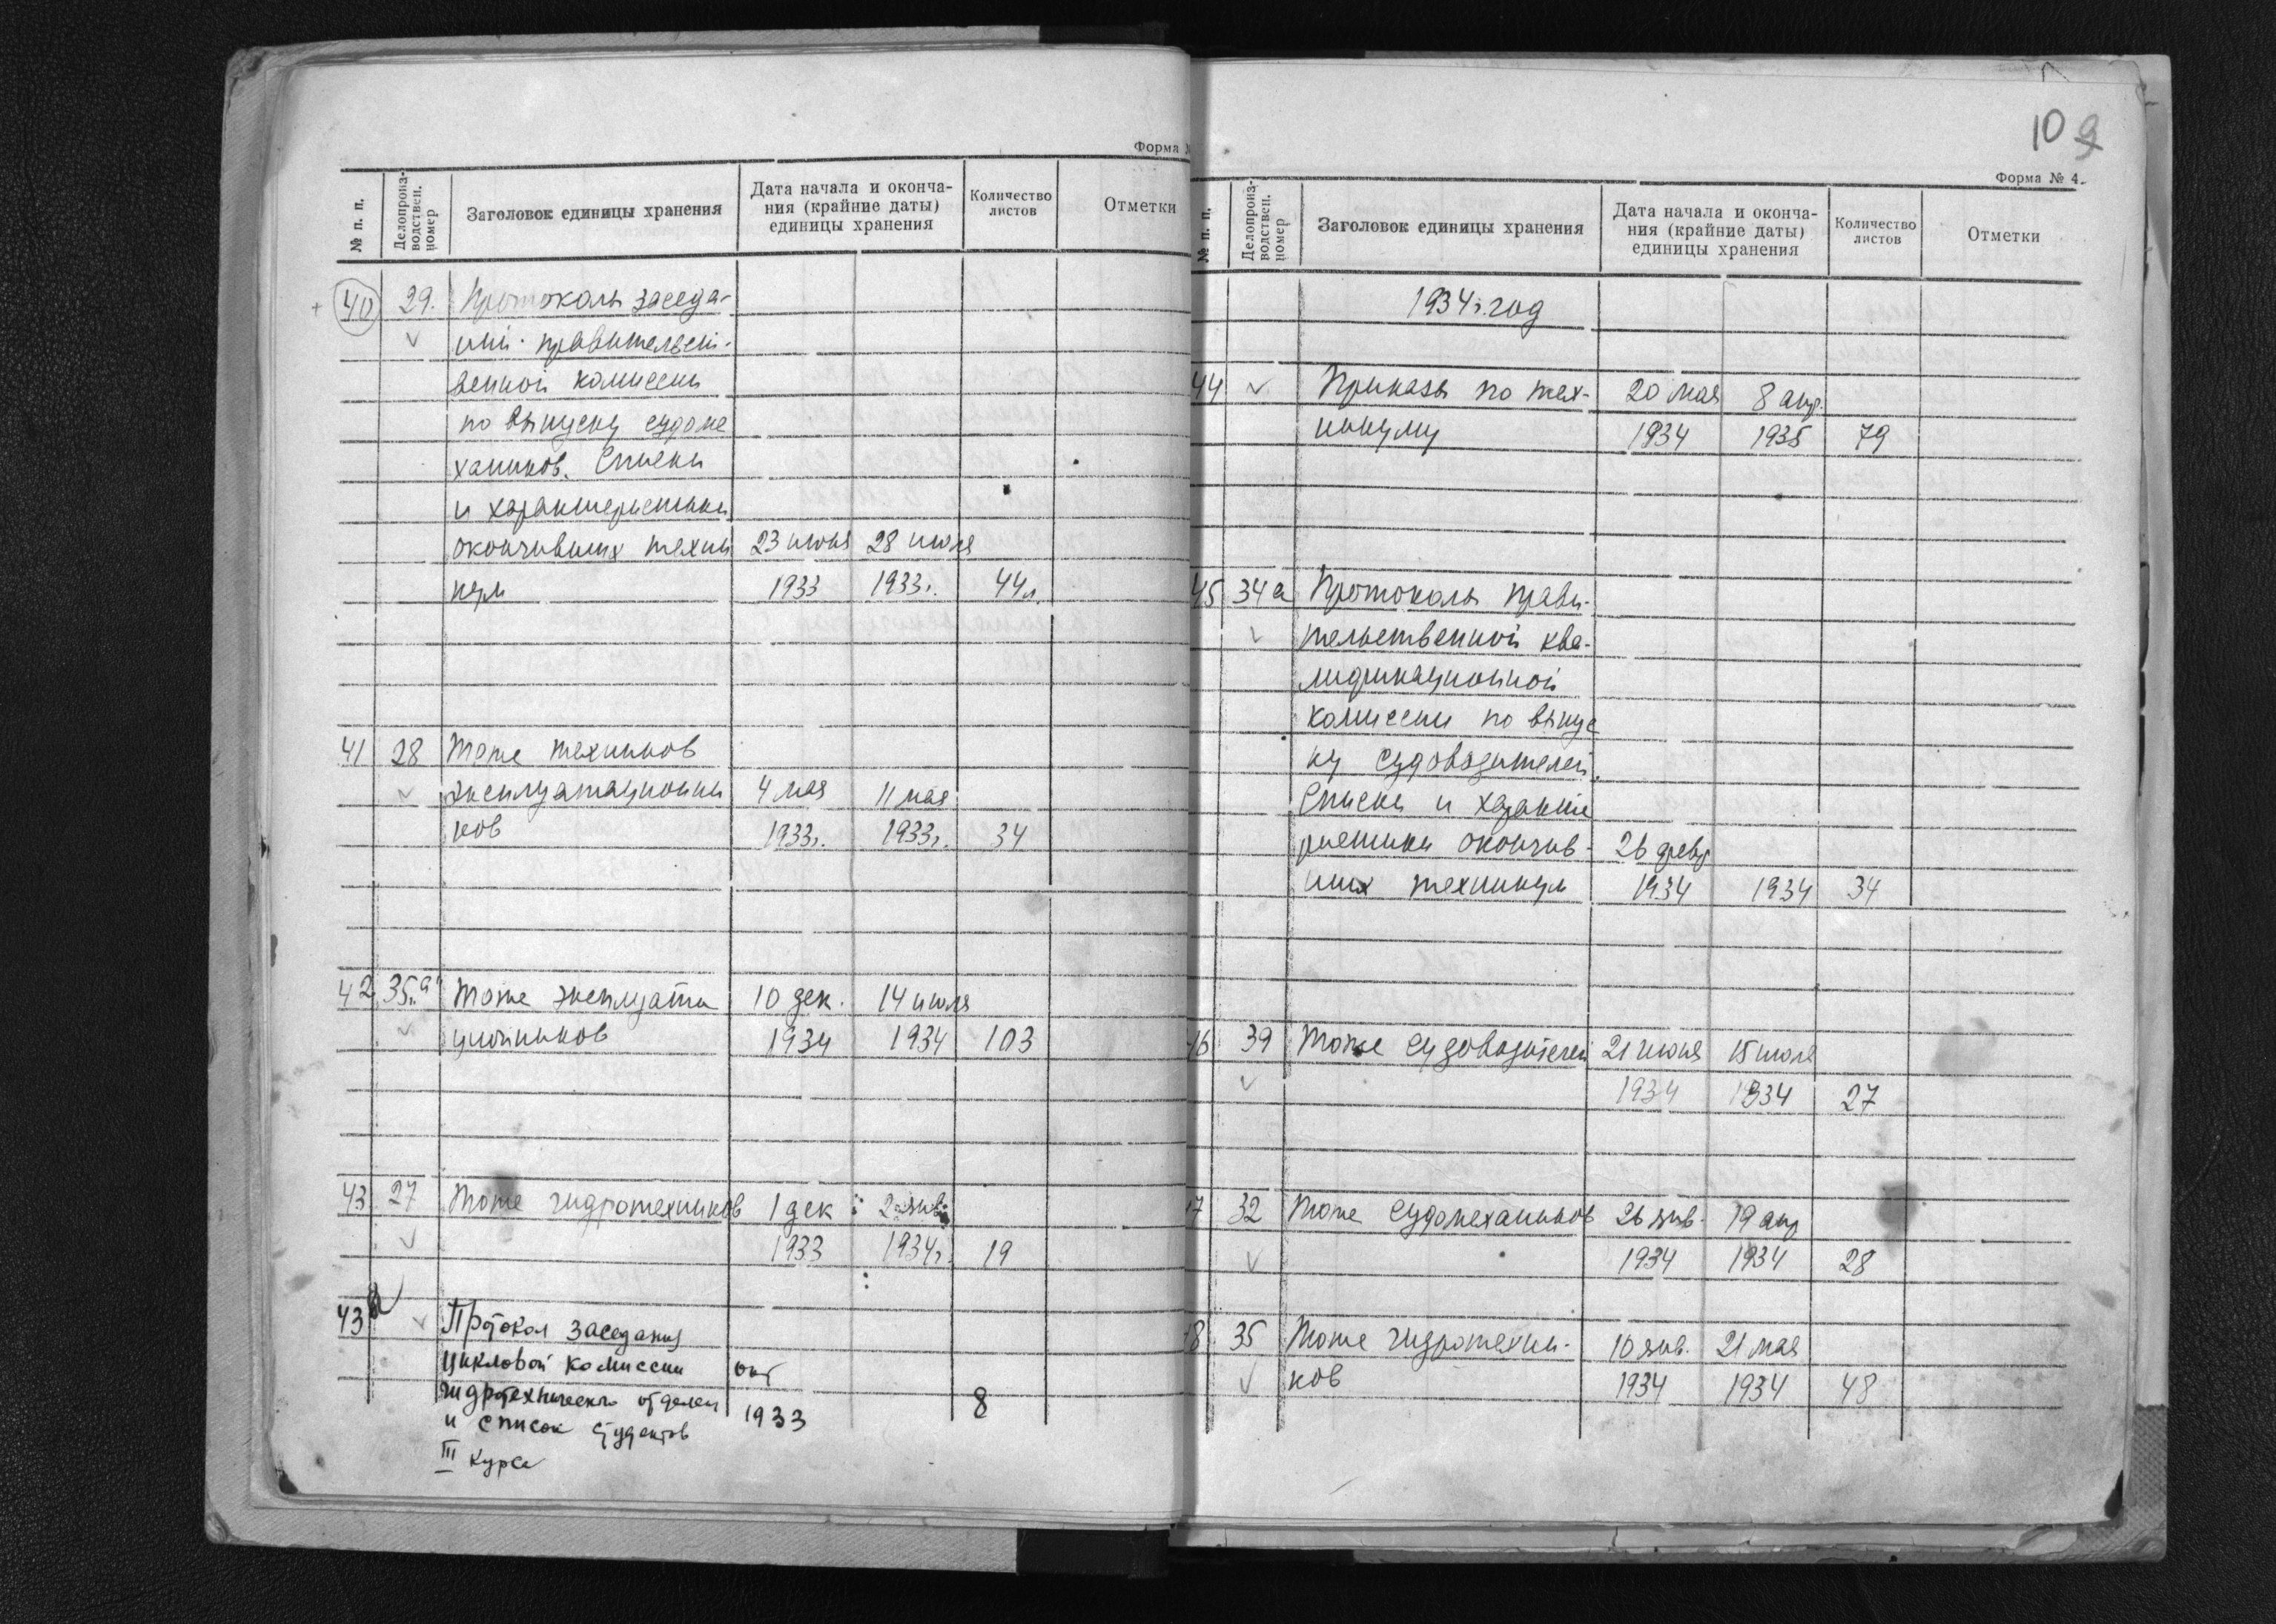 Форма
№ п. п.
Делопроиз-
водствен.
номер
Заголовок единицы хранения
Дата начала и оконча-
ния (крайние даты)
единицы хранения
Количество
листов
Отметки
40 29. Протоколы заседа-
ний правительст-
венной комиссии
по выпуску судоме
хаников. Списки
и характеристики
окончивших техни 23 июня 28 июля
кум 1933 1933г. 44л.
41 28 Тоже техников
эксплуатационни 4 мая 11 мая
ков 1933г. 1933г. 34
42 35"а" Тоже эксплуата 10 дек. 14 июля
ционников 1934 1934 103
43 27 Тоже гидротехников 1 дек 2 янв.
1933 1934г. 19
43а Протокол заседания
цикловой комиссии окт
гидротехническ. отделен 1933 8
и список студентов
III курса
10 9
Форма № 4.
№ п. п.
Делопроиз-
водствен.
номер
Заголовок единицы хранения
Дата начала и оконча-
ния (крайние даты)
единицы хранения
Количество
листов
Отметки
1934г. год
44 Приказы по тех- 20 мая 8 апр.
никуму 1934 1935 79
45 34а Протоколы прави-
тельственной ква-
лификационной
комиссии по выпус
ку судоводителей.
Списки и характе
ристики окончив- 26 февр
ших техникум 1934 1934 34
46 39 Тоже судоводителей 21 июня 15 июля
1934 1934 27
47 32 Тоже судомехаников 26 янв. 19 апр
1934 1934 28
48 35 Тоже гидротехни- 10 янв. 21 мая
ков 1934 1934 48